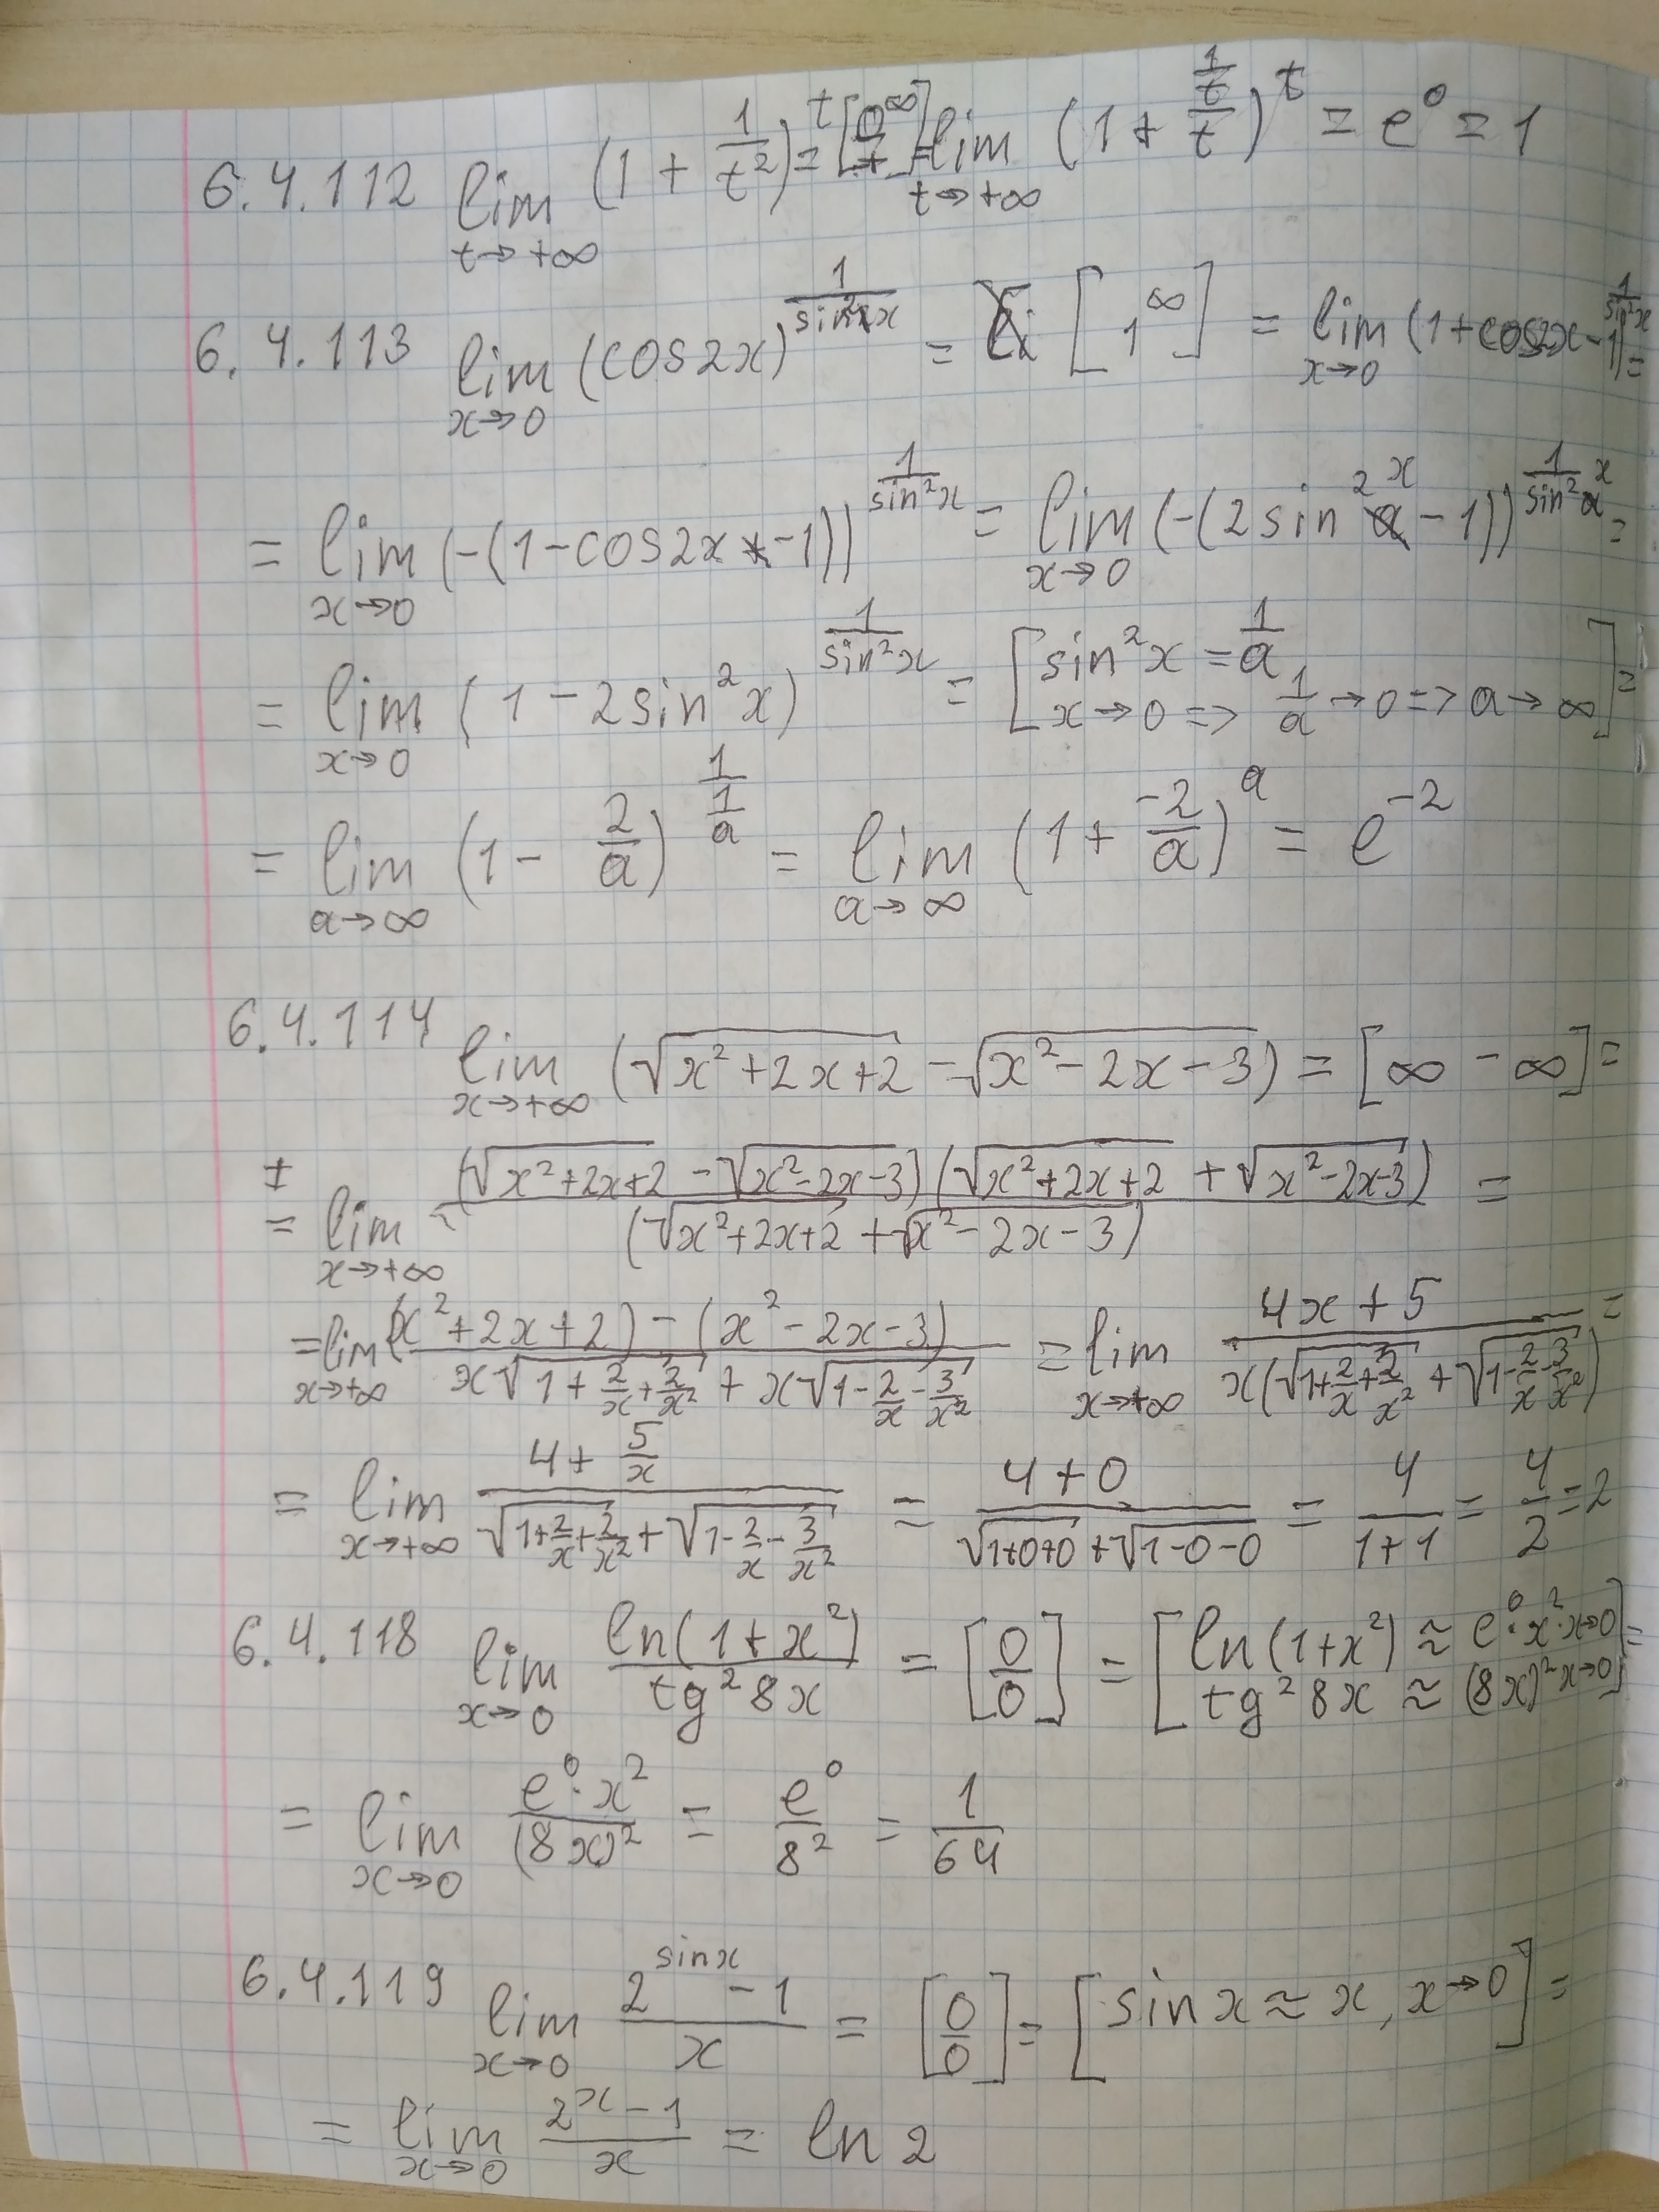 6.4.112 lim t→+∞ (1 + 1/t²)^t = [ ] = lim t→+∞ (1 + (1/t)/t)^t = e^0 = 1
6.4.113 lim x→0 (cos2x)^(1/sin²x) = [1^∞] = lim x→0 (1+cos2x-1)^(1/sin²x) =
= lim x→0 (-(1-cos2x-1))^(1/sin²x) = lim x→0 (-(2sin²x-1))^(1/sin²x) =
= lim x→0 (1-2sin²x)^(1/sin²x) = [sin²x = 1/a
x→0 => 1/a→0 => a→∞] =
= lim a→∞ (1 - 2/a)^(1/(1/a)) = lim a→∞ (1 + -2/a)^a = e^-2
6.4.114 lim x→+∞ (√(x²+2x+2) - √(x²-2x-3)) = [∞ - ∞] =
= lim x→+∞ (√(x²+2x+2) - √(x²-2x-3))(√(x²+2x+2) + √(x²-2x-3)) / (√(x²+2x+2) + √(x²-2x-3)) =
= lim x→+∞ ((x²+2x+2) - (x²-2x-3)) / (x√(1+2/x+2/x²) + x√(1-2/x-3/x²)) = lim x→+∞ (4x+5) / (x(√(1+2/x+2/x²) + √(1-2/x-3/x²))) =
= lim x→+∞ (4+5/x) / (√(1+2/x+2/x²) + √(1-2/x-3/x²)) = (4+0) / (√(1+0+0) + √(1-0-0)) = 4/(1+1) = 4/2 = 2
6.4.118 lim x→0 ln(1+x²) / tg²8x = [0/0] = [ln(1+x²) ≈ e^0·x², x→0
tg²8x ≈ (8x)² x→0] =
= lim x→0 e^0·x² / (8x)² = e^0/8² = 1/64
6.4.119 lim x→0 (2^sinx - 1)/x = [0/0] = [sinx ≈ x, x→0] =
= lim x→0 (2^x - 1)/x = ln2